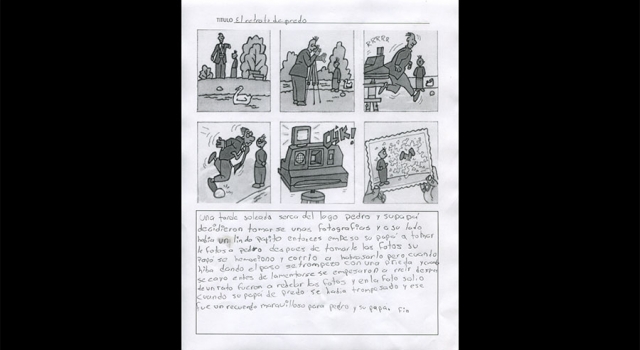 TITULO El retrato de predo
RRRRR
CLIK!
Una tarde soleada serca del lago pedro y su papá
decidieron tomarse unas fotografias y a su lado
había un lindo patito entonces empieso su papá a tomar
le fotos a pedro despues de tomarle las fotos su
papá se homociono y corrio a habrasarlo pero cuando
hiba dando el paso se trompeza con una
se cayo entes de lamentarse se empesaron a reir
de un rato fueron a rebelar las fotos y en la foto salio
cuando su papa de predo se habia trompesado y ese
fue un recuerdo maravilloso para pedro y su papa. Fin